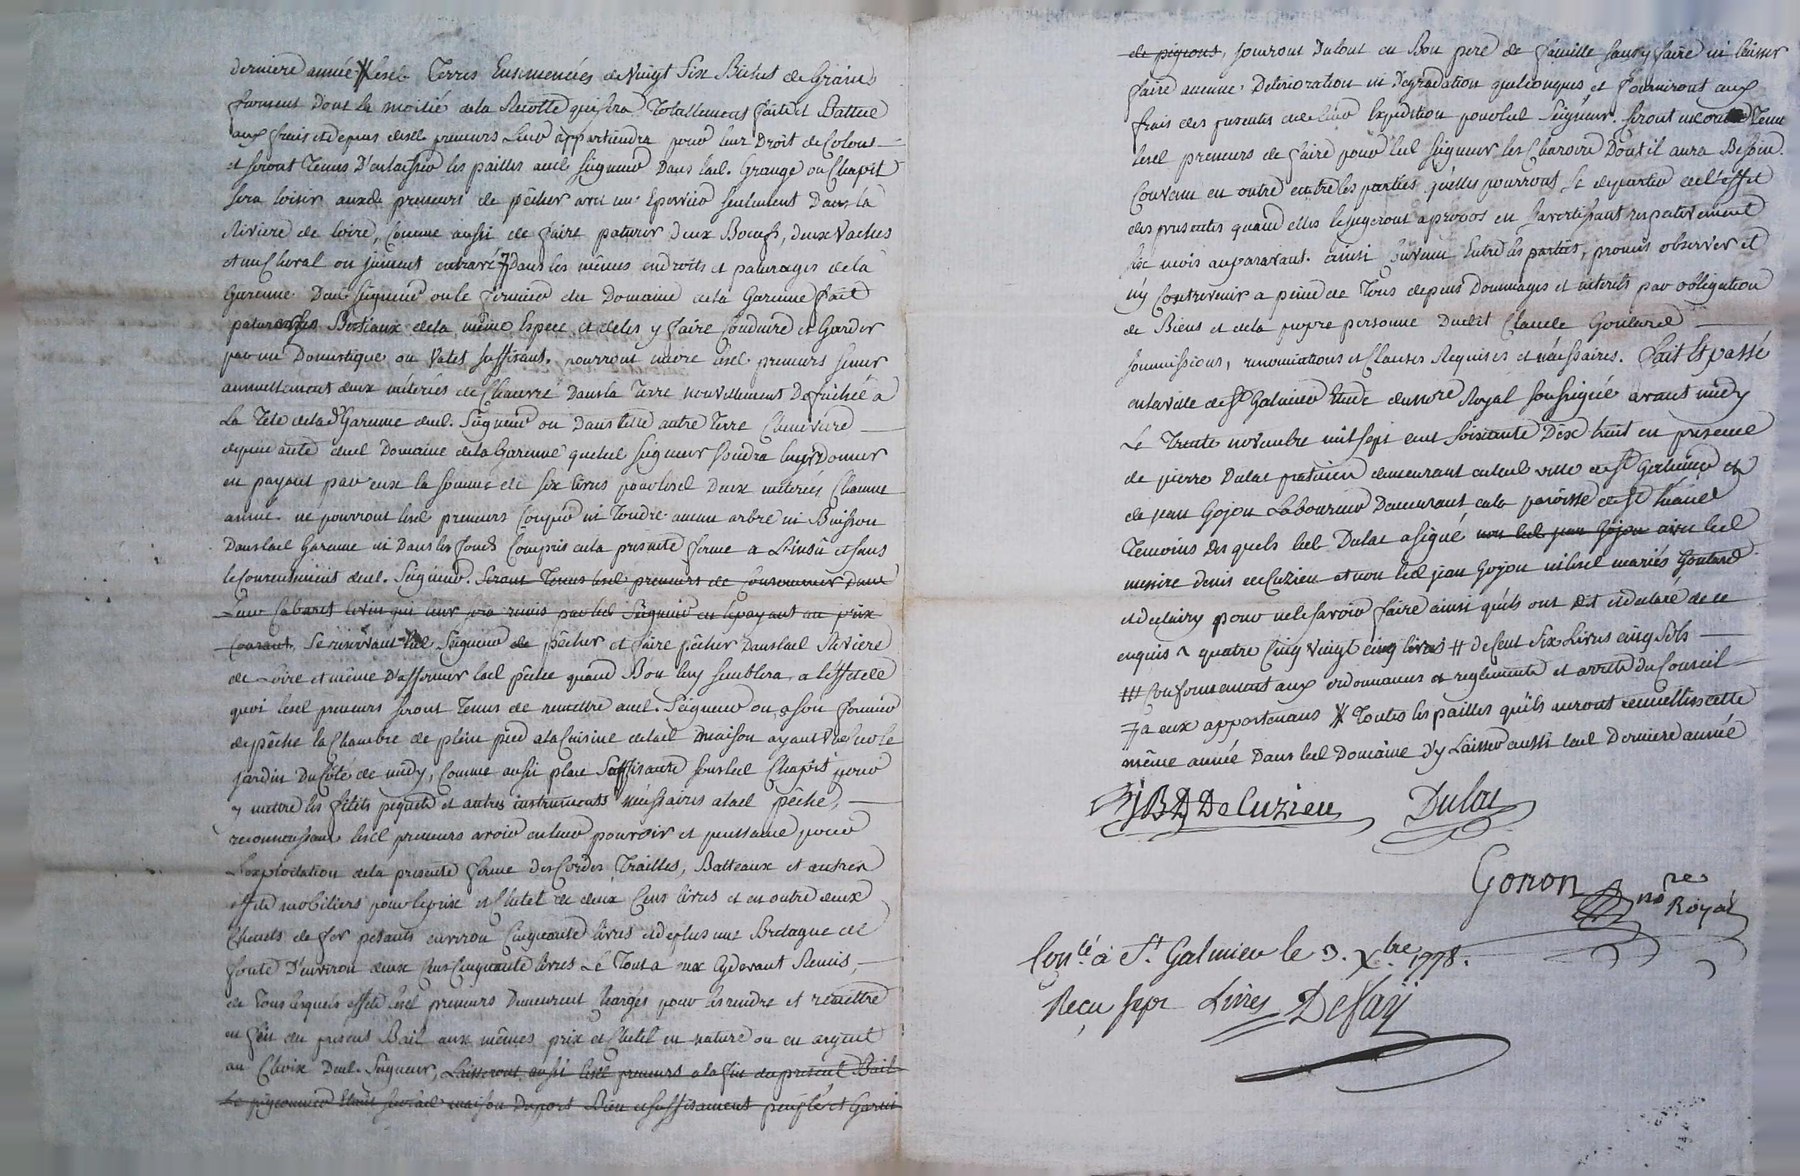 derniere année X lesd. Terres Ensemencées de Vingt Six Bichets de Grain
froment Dont la moitié de la Recolte qui sera Totallement faite et Battue
aux frais et depens desd. preneurs Leur appartiendra pour leur Droit de Colons
et seront Tenus D'entasser les pailles aud. Seigneur Dans lad. Grange ou Chapit
sera loisir auxd. preneurs de pêcher avec un Epervier seulement Dans la
Riviere de Loire, Comme aussi de faire paturer Deux Boeufs, deux Vaches
et un Cheval ou jument entravé 7 Dans les mêmes endroits et paturages de la
Garenne Dud. Seigneur ou le fermier du Domaine de la Garenne fait
paturer les Bestiaux de la même Espece et de les y faire Conduire et Garder
par un Domestique ou Valet suffisant. pourront encore lesd. preneurs semer
annuellement deux meterées de Chanvre Dans la Terre nouvellement Defrichée a
La Tete de la de Garenne dud. Seigneur ou Dans telle autre Terre Cheneviere
dependante dud. Domaine de la Garenne que led. Seigneur Voudra leur Donner
en payant par eux la somme de six livres pour lesd. Deux meterées Chaque
année. ne pourront lesd. preneurs Couper ni Tondre aucun arbre ni Buisson
Dans lad. Garenne ni Dans les fonds Compris en la presente ferme a L'insû et sans
le Consentement dud. Seigneur. Seront Tenus lesd. preneurs de Consommer Dans
Leur Cabaret le vin qui leur sera remis par led. Seigneur en le payant au prix
Courant, Se reservant led. Seigneur de pêcher et faire pêcher Dans lad. Riviere
de Loire et même D'affermer lad. pêche quand Bon luy semblera, a l'effet de
quoi lesd. preneurs seront Tenus de remettre aud. Seigneur ou a son fermier
de pêche la Chambre de plein pied a la Cuisine de lad. maison ayant Vue sur le
jardin Du Côté de midy, Comme aussi place Suffisante sous led. Chapit pour
y mettre les filets piquets et autres instruments necessaires a lad. pêche,
reconnoissant lesd. preneurs avoir en leur pouvoir et puissance pour
L'exploitation de la presente ferme des Cordes Trailles, Batteaux et autres
effets mobiliers pour le prix et Chetel de deux Cens livres et en outre deux
Chenets de fer pesants environ Cinquante livres et de plus une Bretagne de
fonte D'environ deux Cens Cinquante livres Le Tout a eux Cydevant Remis,
de Tous lesquels effets lesd. preneurs Demeurent Chargés pour les rendre et remettre
en fin du present Bail aux mêmes prix et Chetel en nature ou en argent
au Choix Dud. Seigneur, Laisseront aussi lesd. preneurs a la fin du present Bail
Le pigeonnier Etant sur lad. maison Du port Bien et suffisament peuplé et Garni
de pigeons, jouiront Du tout en Bon pere de famille sans y faire ni laisser
faire aucune Deterioration ni Degradation quelconques et fourniront aux
frais des presentes et de leur Expedition pour led. Seigneur. Seront en outre Tenu
lesd. preneurs de faire pour led. Seigneur les Charois Dont il aura Besoin.
Convenu en outre entre les parties qu'elles pourront se departir de l'effet
des presentes quand elles le jugeront apropos en s'avertissant respectivement
six mois auparavant. ainsi Convenu Entre les parties, promis observer et
n'y Contrevenir a peine de Tous depens Dommages et interets par obligation
de Biens et de la propre personne Dudit Claude Goutard
soumissions, renonciations et Clauses Requises et necessaires. Fait et passé
en la ville de St Galmier Etude du nore Royal soussigné avant midy
Le Trente novembre mil sept cent soixante Dix huit en presence
de pierre Dulac praticien demeurant en lad. ville de St Galmier et
de jean Gojon Laboureur Demeurant en la paroisse de St
Temoins Desquels led. Dulac a signé non led. jean Gojon avec led.
messire denis de Cuzieu et non led. jean Gojon ni lesd. mariés Goutard
et pour ne le savoir faire ainsi qu'ils ont dit et declaré de ce
enquis ^ quatre Cinq Vingt cinq livres # de Cent Six Livres cinq Sols
## Conformement aux ordonnances et reglements et arrets du Conseil
7 a eux appartenans X Toutes les pailles qu'ils auront cette
même année Dans led. Domaine D'y Laisser aussi lad. Derniere année
JBD De Cuzieu Dulac
Gonon nore Royal
Conlé à St. Galmier le 3. Xbre 1778.
Reçu sept Livres Defay